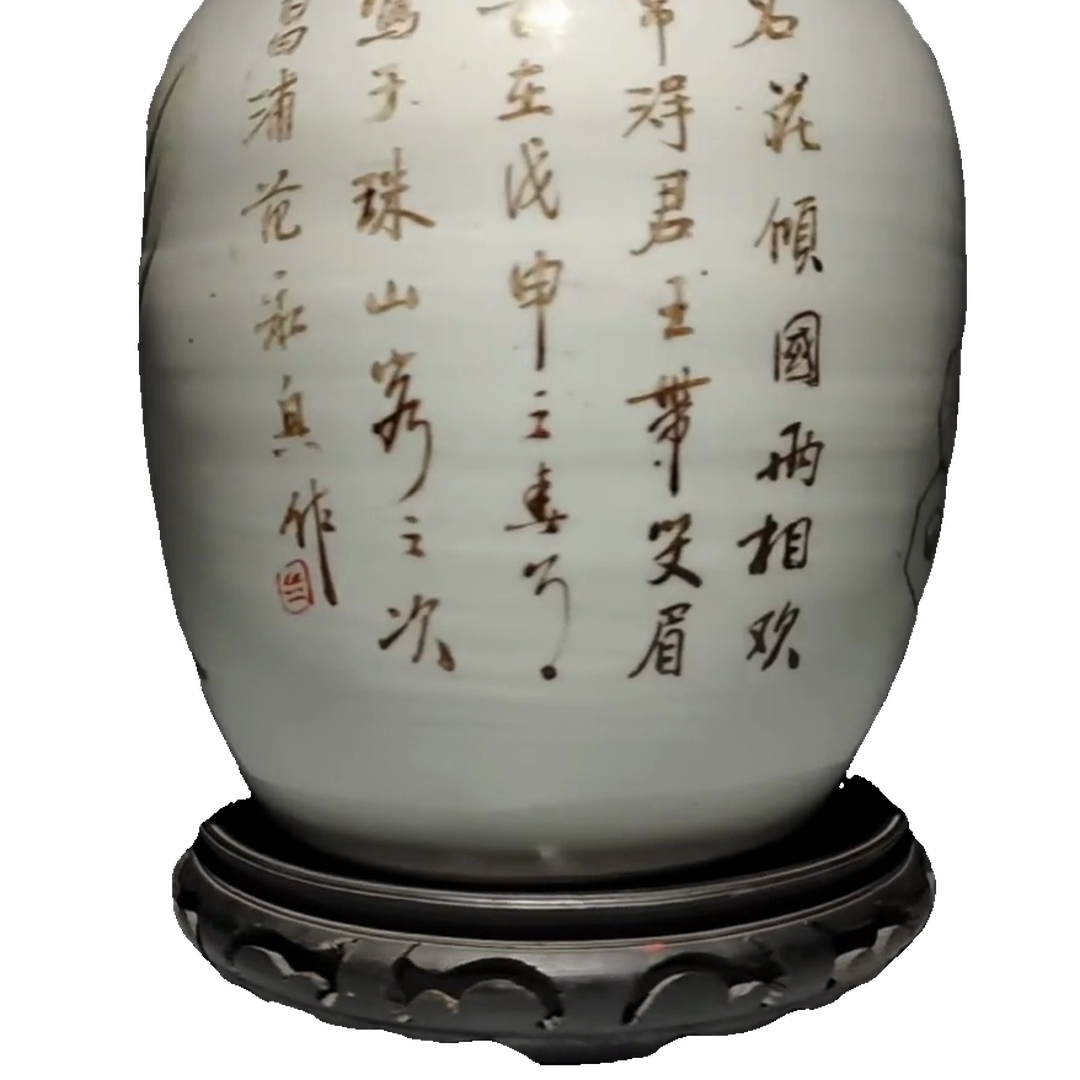 名花傾國兩相欢
常得君王帶笑眉
旹在戊申之春月
寫于珠山客之次
昌浦范永真作